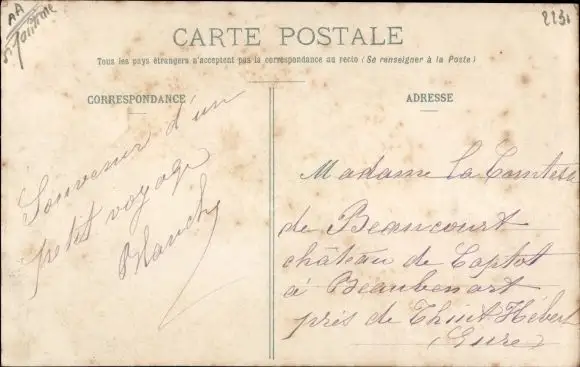 AA
2231
CARTE POSTALE
Tous les pays étrangers n'acceptent pas la correspondance au recto (Se renseigner à la Poste)
CORRESPONDANCE
ADRESSE
Souvenir d'un
petit voyage
Madame la Comtesse
de Beaucourt
château de Captot
à Beaubenart
près de Thuit Hébert
(Eure)